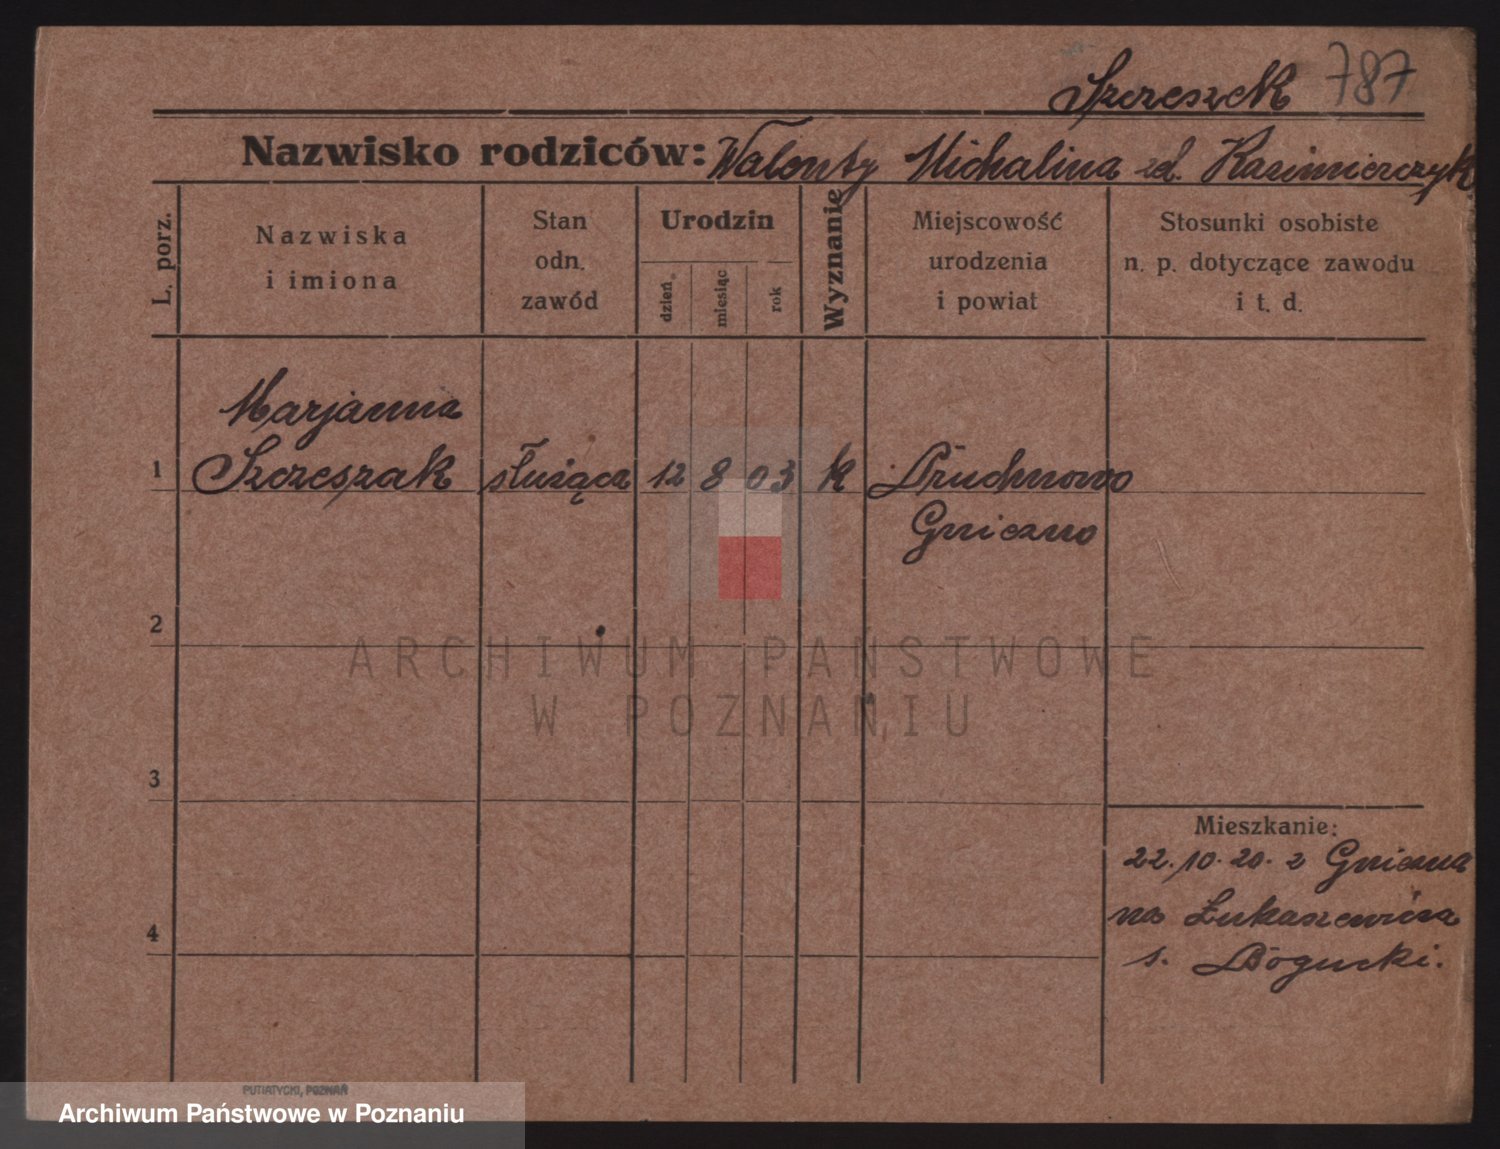 Szczeszek 787
Nazwisko rodziców: Walenty Michalina zd. Kazimierczyk
L. porz.
Nazwiska
i imiona
Stan
odn.
zawód
Urodzin
dzień
miesiąc
rok
Wyznanie
Miejscowość
urodzenia
i powiat
Stosunki osobiste
n. p. dotyczące zawodu
i t. d.
Marjanna
1 Szczeszak służąca 12 8 03 k
Gniezno
2
3
4
Mieszkanie:
22.10.20. z Gniezna
na Łukaszewicza
Bogucki.
ARCHIWUM PAŃSTWOWE
W POZNANIU
PUTIATYCKI, POZNAŃ
Archiwum Państwowe w Poznaniu